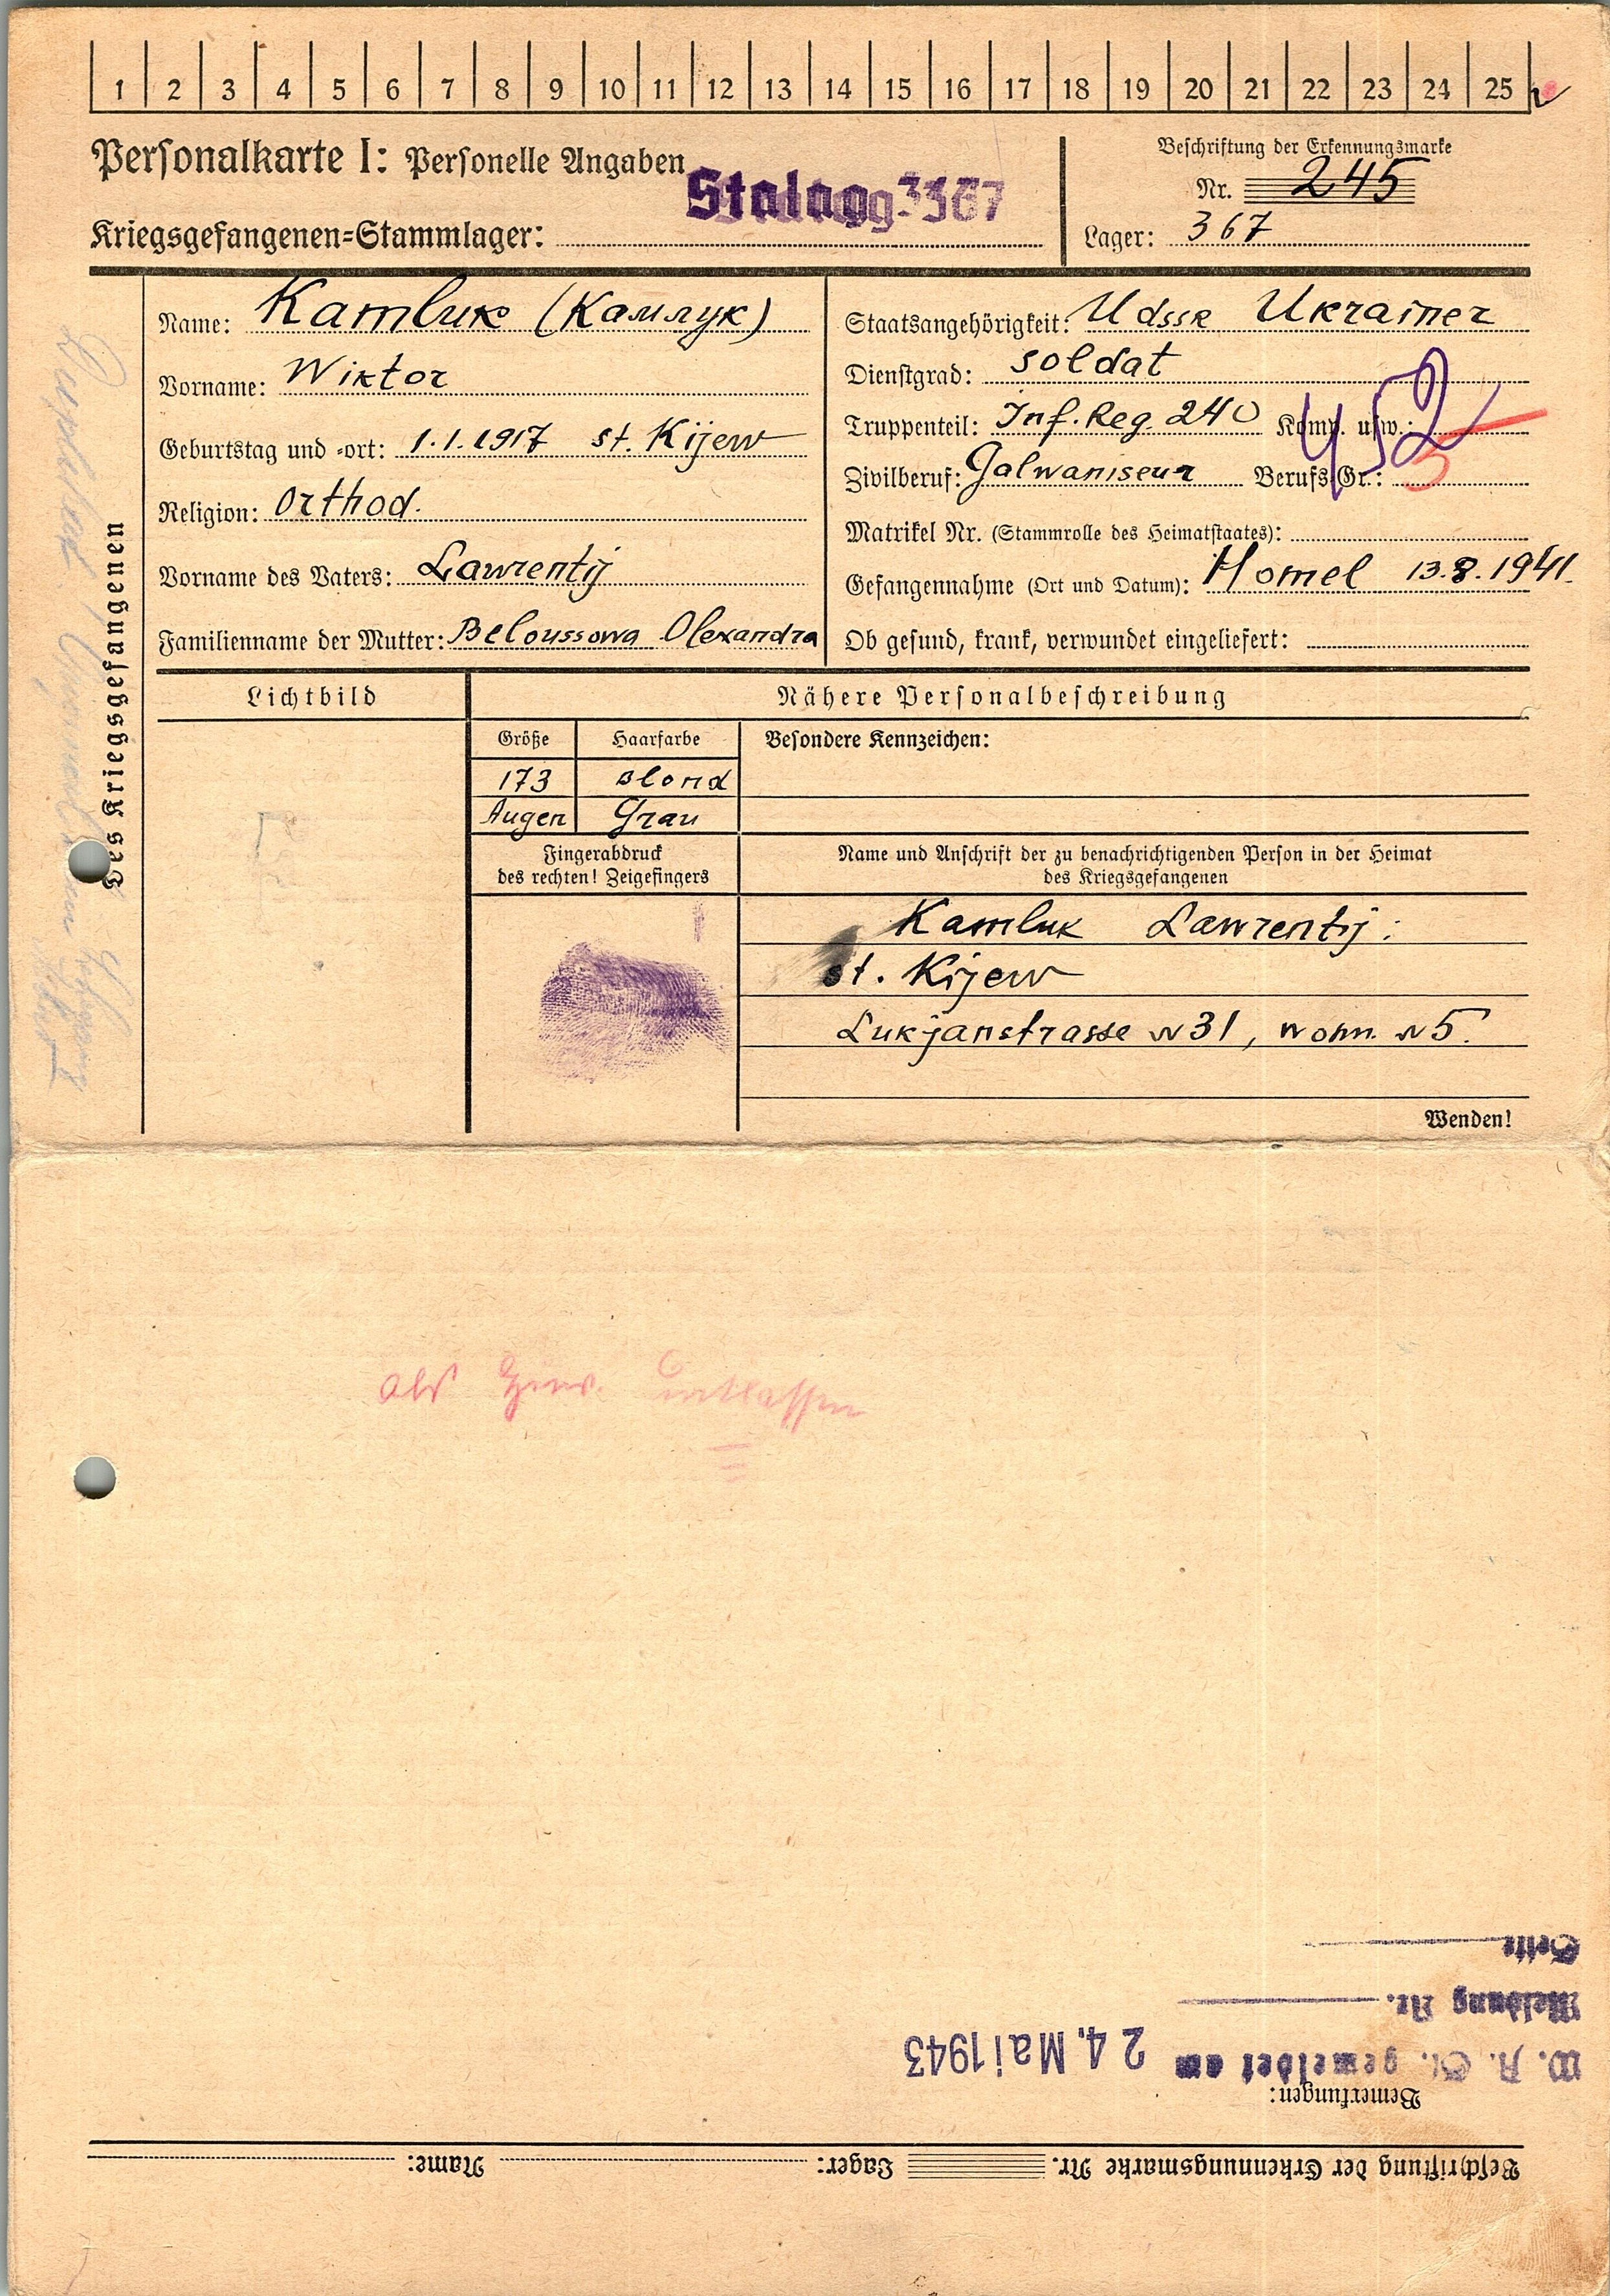 1 2 3 4 5 6 7 8 9 10 11 12 13 14 15 16 17 18 19 20 21 22 23 24 25
Personalkarte I: Personelle Angaben
Stalag 367
Kriegsgefangenen=Stammlager:
Beschriftung der Erkennungsmarke
Nr. 245
Lager: 367
Des Kriegsgefangenen
Name: Kamluk (Камлук)
Vorname: Wiktor
Geburtstag und =ort: 1.1.1917 st. Kijew
Religion: Orthod.
Vorname des Vaters: Lawrentij
Familienname der Mutter: Beloussowa Olexandra
Staatsangehörigkeit: UdssR Ukrainer
Dienstgrad: soldat
Truppenteil: Inf. Reg. 240 Komp. usw.:
452
Zivilberuf: Galwaniseur Berufs-Gr.: 5
Matrikel Nr. (Stammrolle des Heimatstaates):
Gefangennahme (Ort und Datum): Homel 13.8.1941.
Ob gesund, krank, verwundet eingeliefert:
Lichtbild
Nähere Personalbeschreibung
Größe Haarfarbe Besondere Kennzeichen:
173 Blond
Augen Grau
Fingerabdruck
des rechten! Zeigefingers
Name und Anschrift der zu benachrichtigenden Person in der Heimat
des Kriegsgefangenen
Kamluk Lawrentij:
st. Kijew
Lukjanstrasse N 31, wohn. N 5.
Wenden!
als entlassen
Beschriftung der Erkennungsmarke Nr. Lager: Name:
Bemerkungen:
W. A. St. gemeldet am 24. Mai 1943
Meldung Nr.
Seite